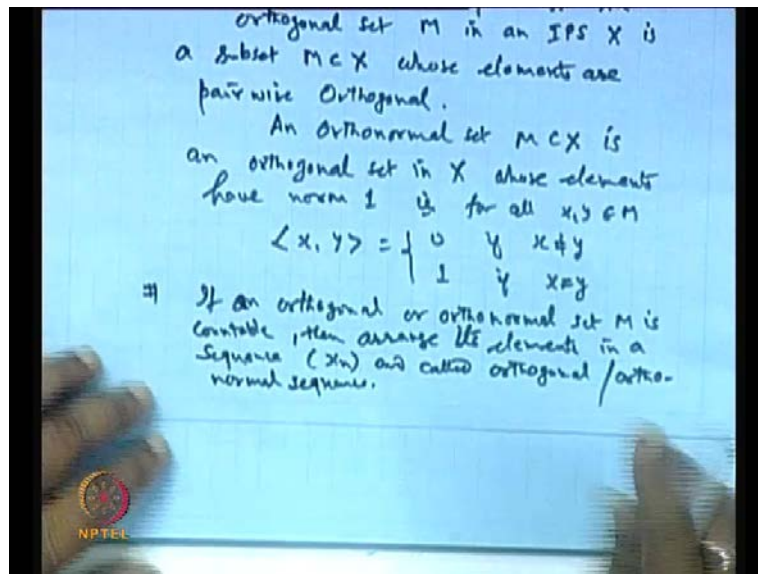 orthogonal set M in an IPS X is
a subset M ⊂ X whose elements are
pairwise Orthogonal.
An Orthonormal set M ⊂ X is
an orthogonal set in X whose elements
have norm 1 ie for all x, y ∈ M
<x, y> = { 0 if x ≠ y
1 if x = y
If an orthogonal or orthonormal set M is
Countable, then arrange its elements in a
Sequence (xn) and called orthogonal / ortho-
normal sequence.
NPTEL